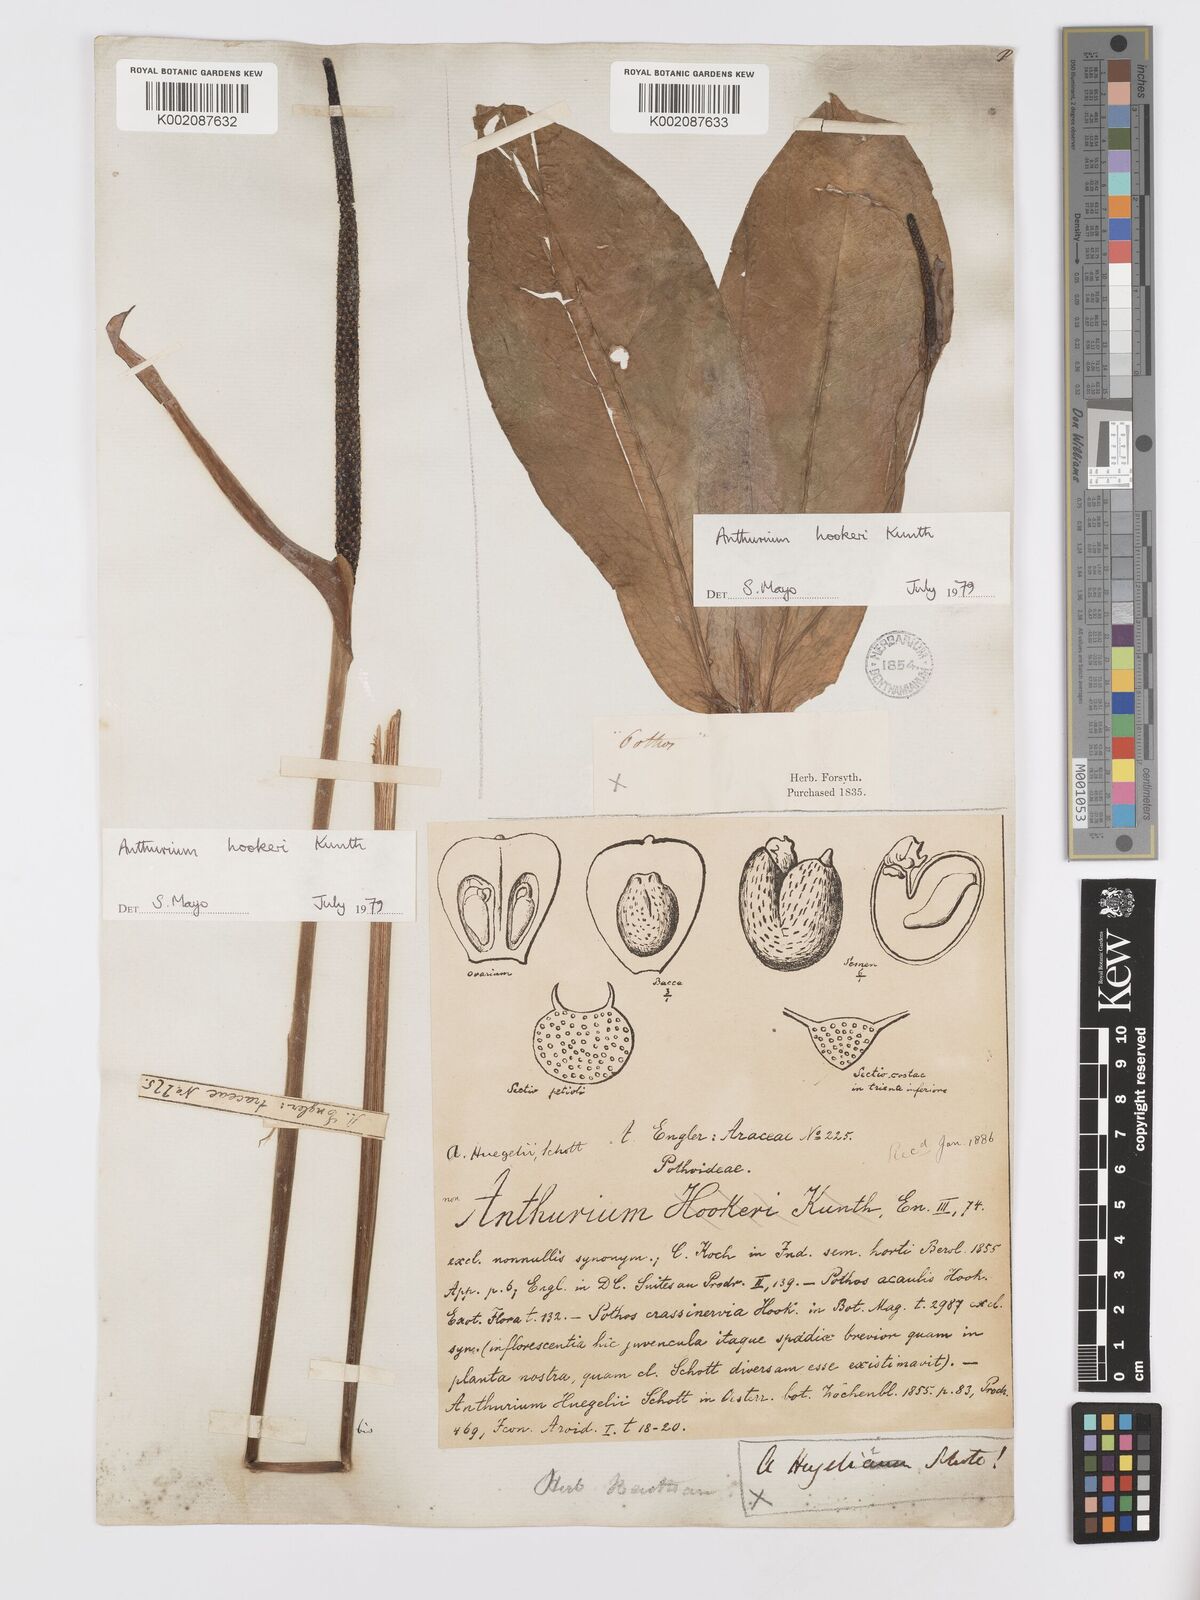 ROYAL BOTANIC GARDENS KEW
K002087632
ROYAL BOTANIC GARDENS KEW
K002087633
Anthurium hookeri Kunth
DET S. Mayo July 1979
HERBARIUM
1854
BENTHAMIANUM
"Pothos"
Herb. Forsyth.
Purchased 1835.
Anthurium hookeri Kunth
DET S. Mayo July 1979
Engler: Araceae No 225.
ovarium
Bacca
3/1
Semen
6/1
Sectio petioli
Sectio costae
in triente inferiore
A. Huegelii, Schott
Engler: Araceae No 225.
Recd Jan. 1886
Pothoideae.
non Anthurium Hookeri Kunth, En. III, 74.
excl. nonnullis synonym.; C. Koch in Ind. sem. horti Berol. 1855
App. p. 6, Engl. in DC. Suites au Prodr. II, 139. — Pothos acaulis Hook.
Exot. Flora t. 132. — Pothos crassinervia Hook. in Bot. Mag. t. 2987 excl.
syn. (inflorescentia hic juvencula itaque spadix brevior quam in
planta nostra, quam cl. Schott diversam esse existimavit). —
Anthurium Huegelii Schott in Oesterr. bot. Wochenbl. 1855. p. 83, Prodr.
469, Icon. Aroid. I. t 18-20.
bis
Herb
X
inches
D50 Illuminant, 2 degree observer
Density
Don Williams
M001053
centimeters
Royal Botanic Gardens
Kew
0 1 2 3 4 5 6 7 8 9 10
cm
copyright reserved